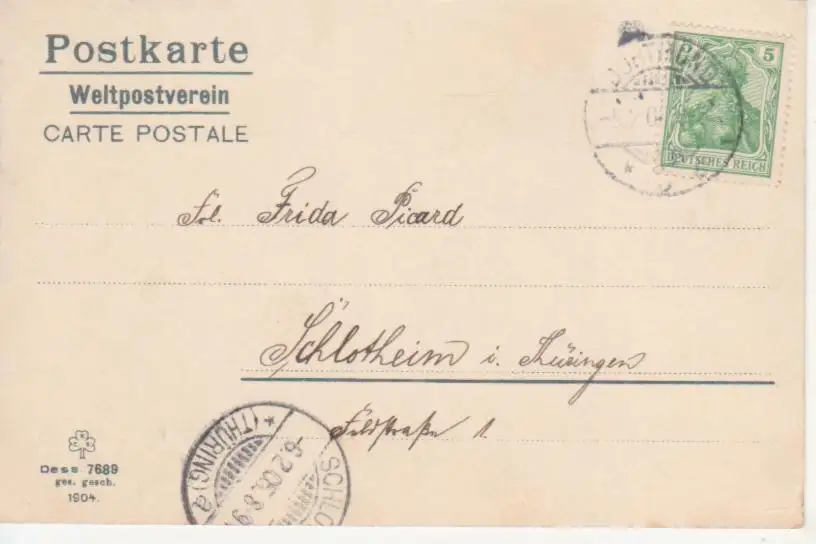 Postkarte
Weltpostverein
CARTE POSTALE
5
DEUTSCHES REICH
Frl. Frida Picard
Schlotheim i. Thüringen
Feldstraße 1.
SCHLO
*(THÜRING) a
6.2.05. 8-9
Dess 7689
ges. gesch.
1904.